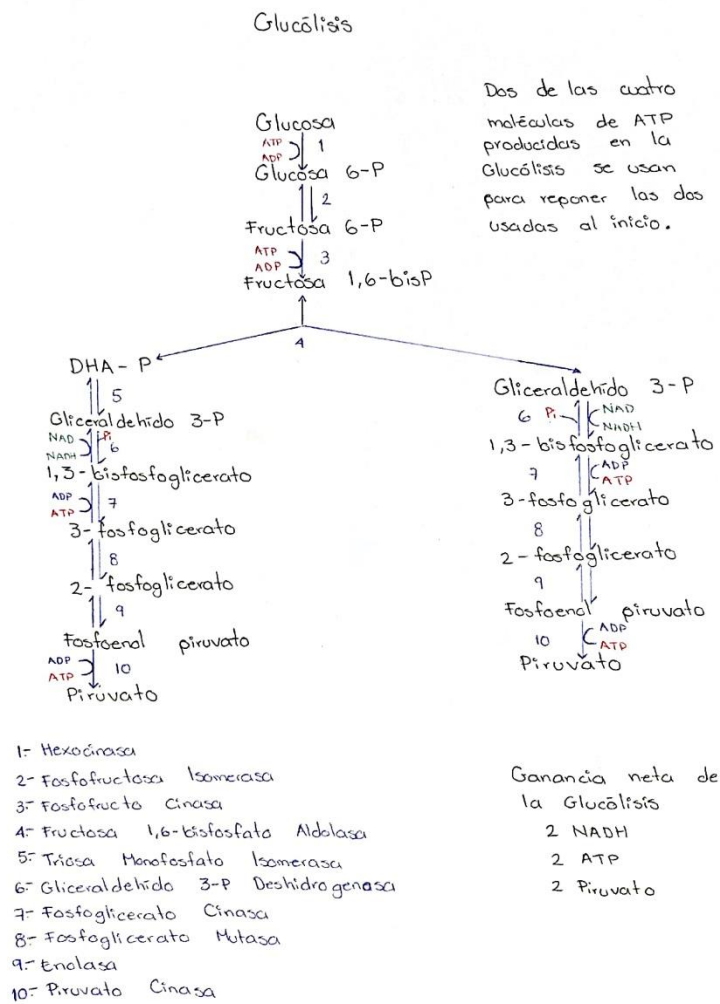 Glucólisis
Dos de las cuatro
moléculas de ATP
producidas en la
Glucólisis se usan
para reponer las dos
usadas al inicio.
Glucosa
ATP
ADP
1
Glucosa 6-P
2
Fructosa 6-P
ATP
ADP
3
Fructosa 1,6-bisP
4
DHA-P
5
Gliceraldehído 3-P
NAD
NADH
Pi
6
1,3-bisfosfoglicerato
ADP
ATP
7
3-fosfoglicerato
8
2-fosfoglicerato
9
Fosfoenol piruvato
ADP
ATP
10
Piruvato
Gliceraldehído 3-P
6
Pi
NAD
NADH
1,3-bisfosfoglicerato
7
ADP
ATP
3-fosfoglicerato
8
2-fosfoglicerato
9
Fosfoenol piruvato
10
ADP
ATP
Piruvato
1.- Hexocinasa
2.- Fosfofructosa Isomerasa
3.- Fosfofructo Cinasa
4.- Fructosa 1,6-bisfosfato Aldolasa
5.- Triosa Monofosfato Isomerasa
6.- Gliceraldehído 3-P Deshidrogenasa
7.- Fosfoglicerato Cinasa
8.- Fosfoglicerato Mutasa
9.- Enolasa
10.- Piruvato Cinasa
Ganancia neta de
la Glucólisis
2 NADH
2 ATP
2 Piruvato